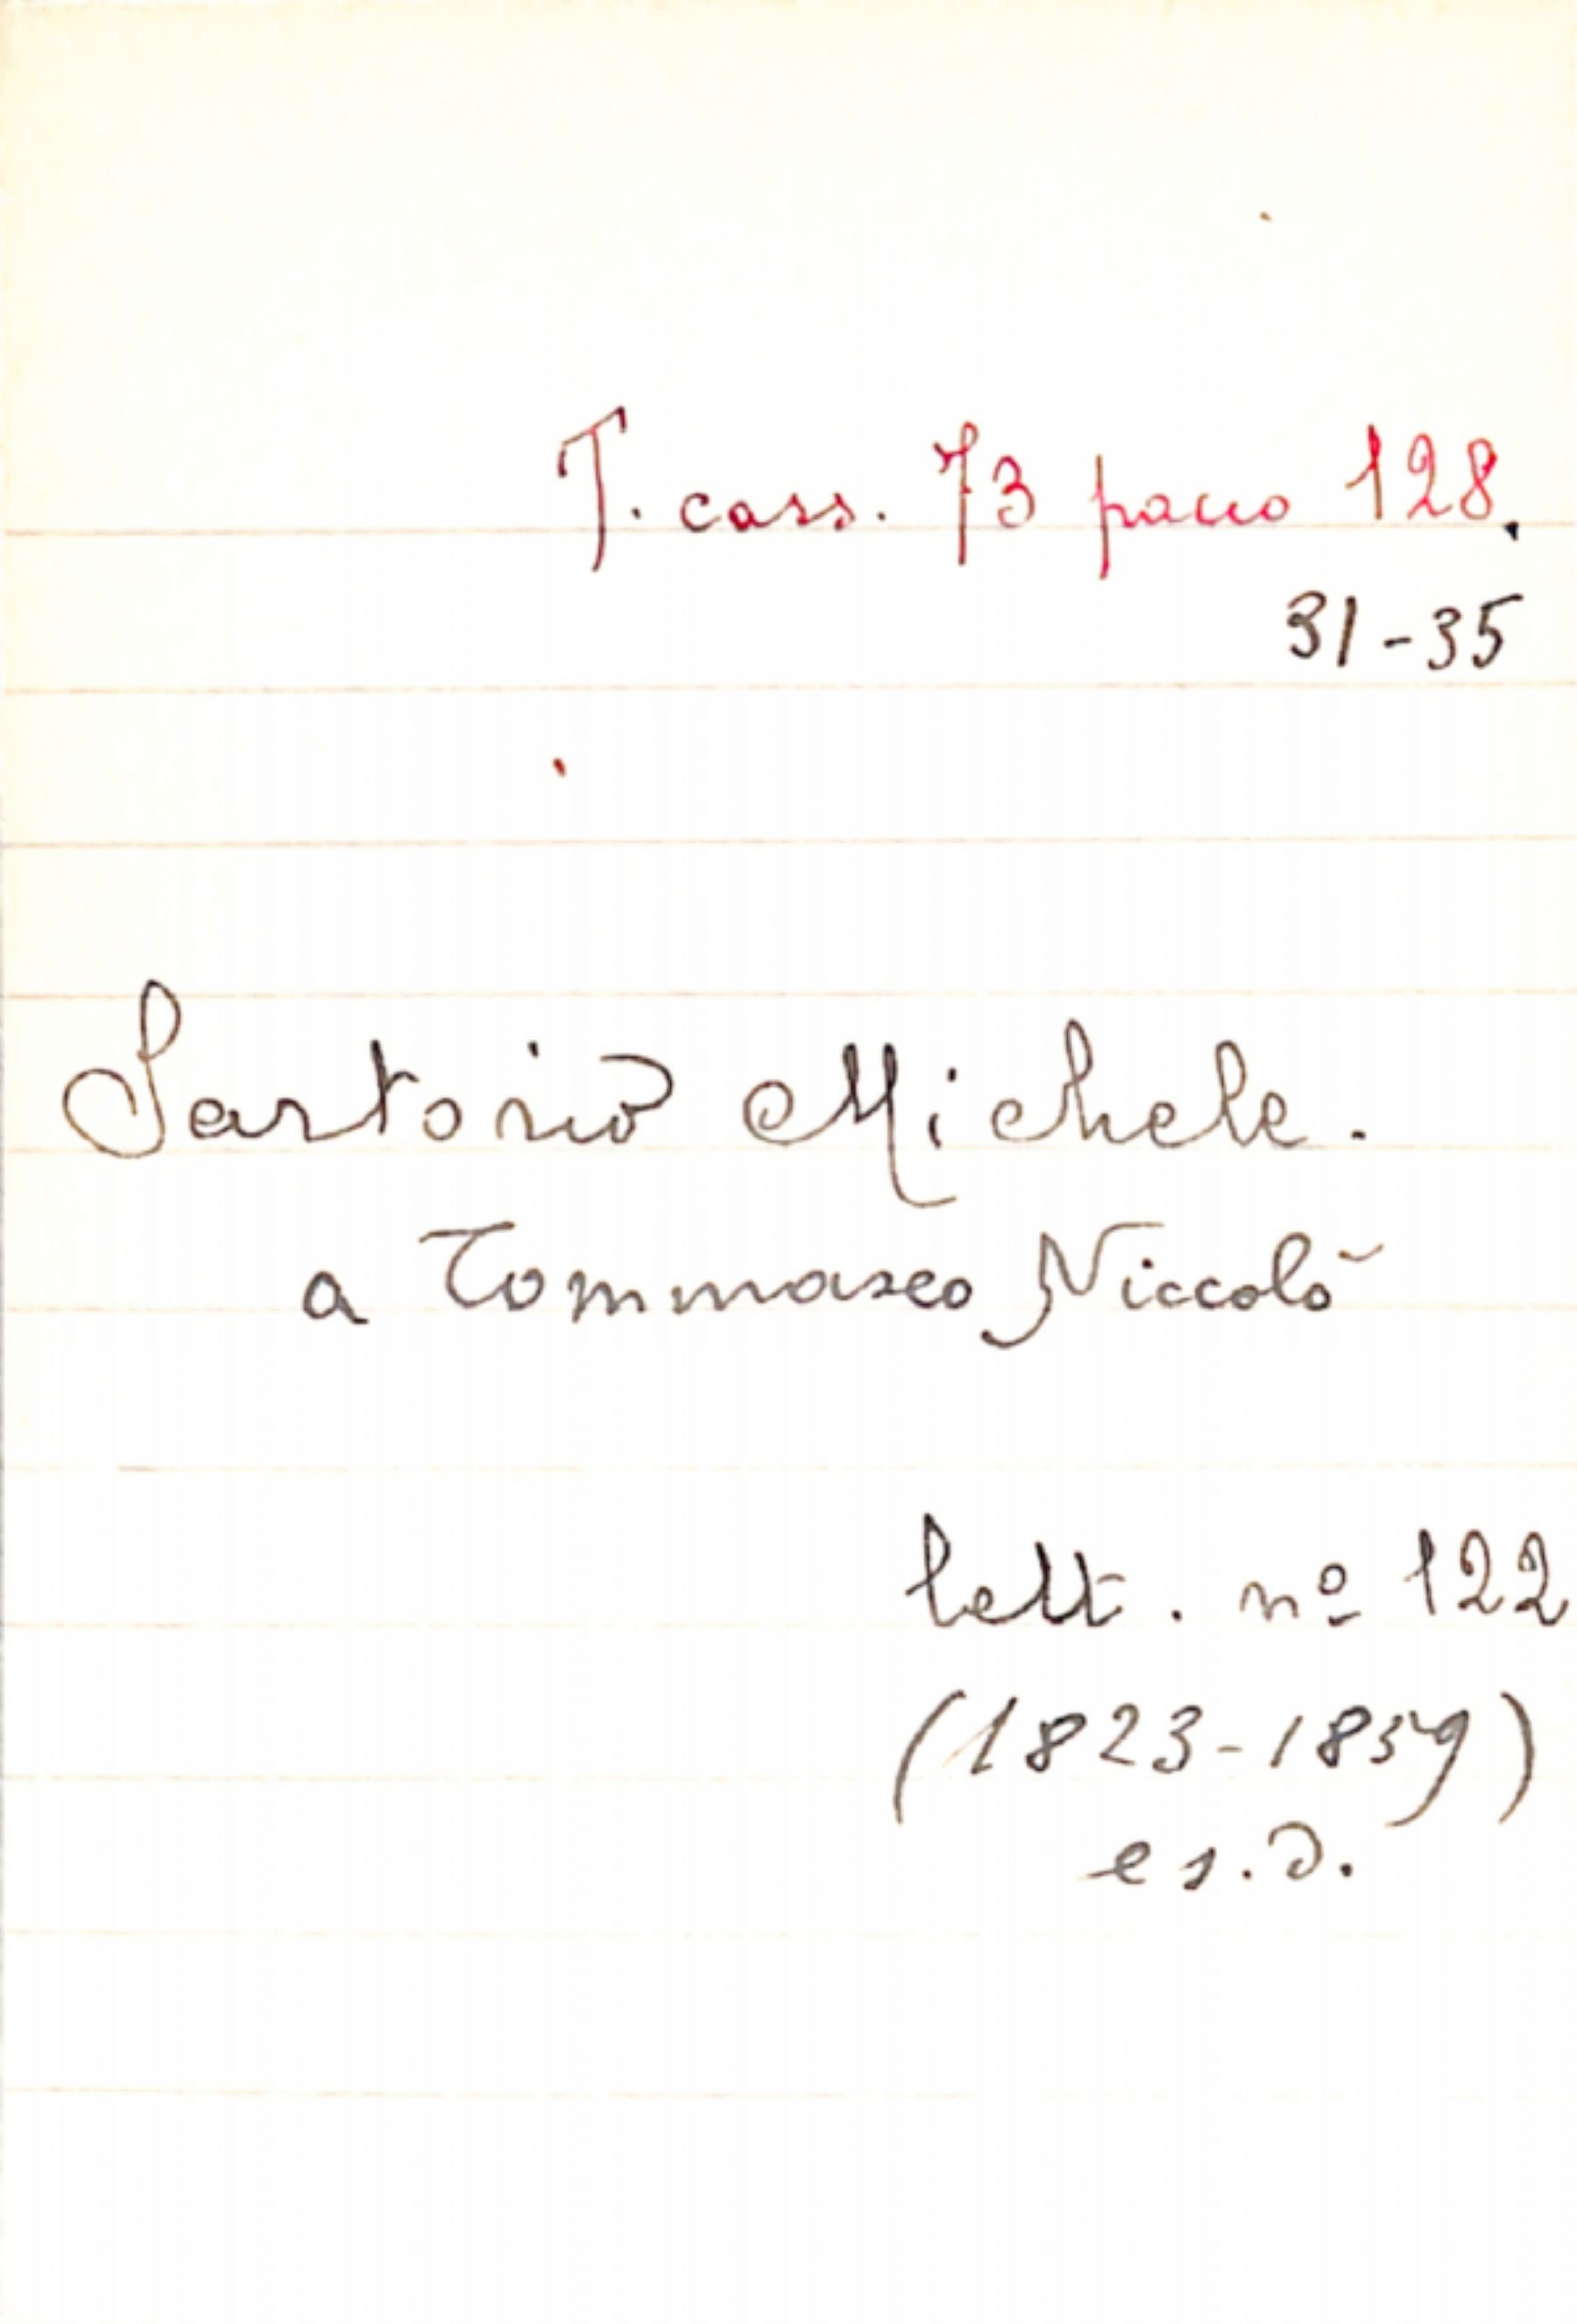 T. cass. 73 pacco 128.
31-35
Sartorio Michele.
a Tommaseo Niccolò
lett. nº 122
(1823-1859)
e s.d.